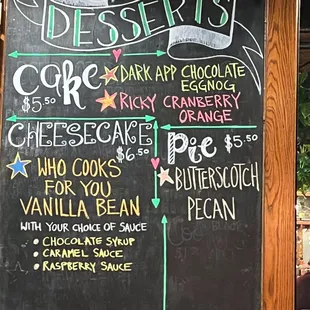 DESSERTS
Cake
$5.50
DARK APP CHOCOLATE
EGGNOG
RICKY CRANBERRY
ORANGE
CHEESECAKE
$6.50
WHO COOKS
FOR YOU
VANILLA BEAN
WITH YOUR CHOICE OF SAUCE
• CHOCOLATE SYRUP
• CARAMEL SAUCE
• RASPBERRY SAUCE
Pie $5.50
BUTTERSCOTCH
PECAN